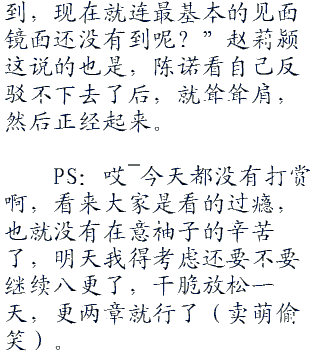 到，现在就连最基本的见面
镜面还没有到呢？”赵莉颖
这说的也是，陈诺看自己反
驳不下去了后，就耸耸肩，
然后正经起来。
PS：哎¯今天都没有打赏
啊，看来大家是看的过瘾，
也就没有在意柚子的辛苦
了，明天我得考虑还要不要
继续八更了，干脆放松一
天，更两章就行了（卖萌偷
笑）。